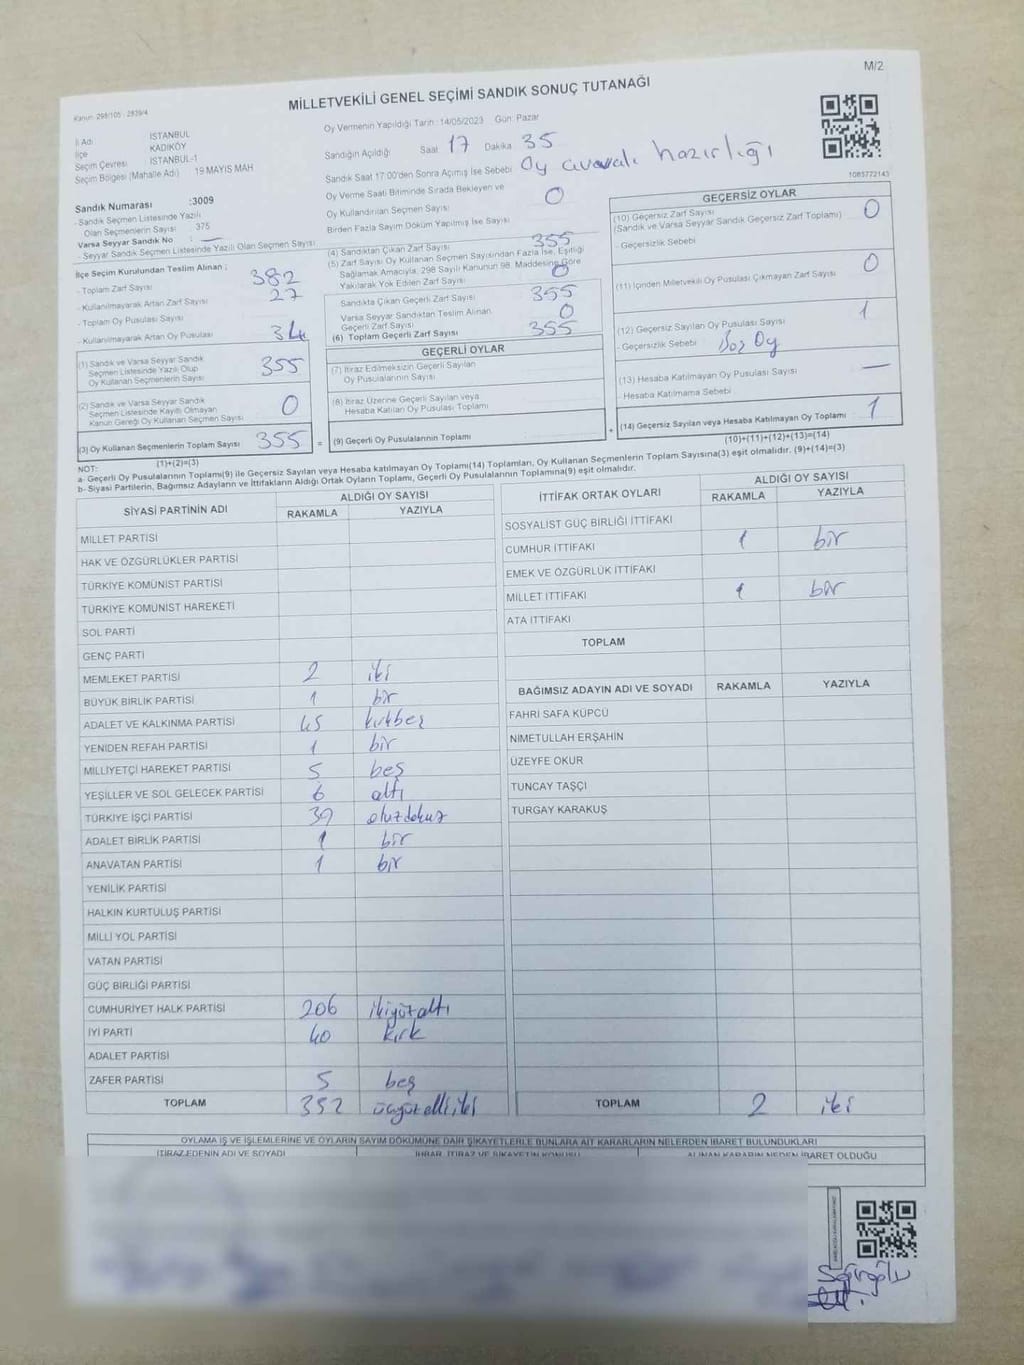 M/2
Kanun: 298/105 - 2839/4
MİLLETVEKİLİ GENEL SEÇİMİ SANDIK SONUÇ TUTANAĞI
İl Adı İSTANBUL
İlçe KADIKÖY
Seçim Çevresi İSTANBUL-1
Seçim Bölgesi (Mahalle Adı) 19 MAYIS MAH
Oy Vermenin Yapıldığı Tarih : 14/05/2023 Gün: Pazar
Sandığın Açıldığı Saat 17 Dakika 35
Sandık Saat 17:00'den Sonra Açılmış İse Sebebi Oy hazırlığı
Oy Verme Saati Bitiminde Sırada Bekleyen ve
Oy Kullandırılan Seçmen Sayısı 0
Birden Fazla Sayım Döküm Yapılmış İse Sayısı
1085772143
Sandık Numarası :3009
- Sandık Seçmen Listesinde Yazılı
Olan Seçmenlerin Sayısı : 375
Varsa Seyyar Sandık No : —
- Seyyar Sandık Seçmen Listesinde Yazılı Olan Seçmen Sayısı
İlçe Seçim Kurulundan Teslim Alınan ;
- Toplam Zarf Sayısı 382
- Kullanılmayarak Artan Zarf Sayısı 27
- Toplam Oy Pusulası Sayısı
- Kullanılmayarak Artan Oy Pusulası 34
(1) Sandık ve Varsa Seyyar Sandık
Seçmen Listesinde Yazılı Olup
Oy Kullanan Seçmenlerin Sayısı 355
(2) Sandık ve Varsa Seyyar Sandık
Seçmen Listesinde Kayıtlı Olmayan
Kanun Gereği Oy Kullanan Seçmen Sayısı 0
(3) Oy Kullanan Seçmenlerin Toplam Sayısı 355 =
(1)+(2)=(3)
(4) Sandıktan Çıkan Zarf Sayısı 355
(5) Zarf Sayısı Oy Kullanan Seçmen Sayısından Fazla İse, Eşitliği
Sağlamak Amacıyla, 298 Sayılı Kanunun 98. Maddesine Göre
Yakılarak Yok Edilen Zarf Sayısı 0
Sandıkta Çıkan Geçerli Zarf Sayısı 355
Varsa Seyyar Sandıktan Teslim Alınan
Geçerli Zarf Sayısı 0
(6) Toplam Geçerli Zarf Sayısı 355
GEÇERLİ OYLAR
(7) İtiraz Edilmeksizin Geçerli Sayılan
Oy Pusulalarının Sayısı
(8) İtiraz Üzerine Geçerli Sayılan veya
Hesaba Katılan Oy Pusulası Toplamı
(9) Geçerli Oy Pusulalarının Toplamı +
GEÇERSİZ OYLAR
(10) Geçersiz Zarf Sayısı
(Sandık ve Varsa Seyyar Sandık Geçersiz Zarf Toplamı) 0
- Geçersizlik Sebebi
(11) İçinden Milletvekili Oy Pusulası Çıkmayan Zarf Sayısı 0
(12) Geçersiz Sayılan Oy Pusulası Sayısı 1
- Geçersizlik Sebebi Boş Oy
(13) Hesaba Katılmayan Oy Pusulası Sayısı —
- Hesaba Katılmama Sebebi
(14) Geçersiz Sayılan veya Hesaba Katılmayan Oy Toplamı 1
(10)+(11)+(12)+(13)=(14)
NOT:
a- Geçerli Oy Pusulalarının Toplamı(9) ile Geçersiz Sayılan veya Hesaba katılmayan Oy Toplamı(14) Toplamları, Oy Kullanan Seçmenlerin Toplam Sayısına(3) eşit olmalıdır. (9)+(14)=(3)
b- Siyasi Partilerin, Bağımsız Adayların ve İttifakların Aldığı Ortak Oyların Toplamı, Geçerli Oy Pusulalarının Toplamına(9) eşit olmalıdır.
SİYASİ PARTİNİN ADI ALDIĞI OY SAYISI
RAKAMLA YAZIYLA
MİLLET PARTİSİ
HAK VE ÖZGÜRLÜKLER PARTİSİ
TÜRKİYE KOMÜNİST PARTİSİ
TÜRKİYE KOMÜNİST HAREKETİ
SOL PARTİ
GENÇ PARTİ
MEMLEKET PARTİSİ 2 iki
BÜYÜK BİRLİK PARTİSİ 1 bir
ADALET VE KALKINMA PARTİSİ 45 kırkbeş
YENİDEN REFAH PARTİSİ 1 bir
MİLLİYETÇİ HAREKET PARTİSİ 5 beş
YEŞİLLER VE SOL GELECEK PARTİSİ 6 altı
TÜRKİYE İŞÇİ PARTİSİ 39 otuzdokuz
ADALET BİRLİK PARTİSİ 1 bir
ANAVATAN PARTİSİ 1 bir
YENİLİK PARTİSİ
HALKIN KURTULUŞ PARTİSİ
MİLLİ YOL PARTİSİ
VATAN PARTİSİ
GÜÇ BİRLİĞİ PARTİSİ
CUMHURİYET HALK PARTİSİ 206 ikiyüzaltı
İYİ PARTİ 40 kırk
ADALET PARTİSİ
ZAFER PARTİSİ 5 beş
TOPLAM 352 üçyüzelliiki
İTTİFAK ORTAK OYLARI ALDIĞI OY SAYISI
RAKAMLA YAZIYLA
SOSYALİST GÜÇ BİRLİĞİ İTTİFAKI
CUMHUR İTTİFAKI 1 bir
EMEK VE ÖZGÜRLÜK İTTİFAKI
MİLLET İTTİFAKI 1 bir
ATA İTTİFAKI
TOPLAM
BAĞIMSIZ ADAYIN ADI VE SOYADI RAKAMLA YAZIYLA
FAHRİ SAFA KÜPCÜ
NİMETULLAH ERŞAHİN
ÜZEYFE OKUR
TUNCAY TAŞÇI
TURGAY KARAKUŞ
TOPLAM 2 iki
OYLAMA İŞ VE İŞLEMLERİNE VE OYLARIN SAYIM DÖKÜMÜNE DAİR ŞİKAYETLERLE BUNLARA AİT KARARLARIN NELERDEN İBARET BULUNDUKLARI
İTİRAZ EDENİN ADI VE SOYADI İHBAR, İTİRAZ VE ŞİKAYETİN KONUSU ALINAN KARARIN NEDEN İBARET OLDUĞU